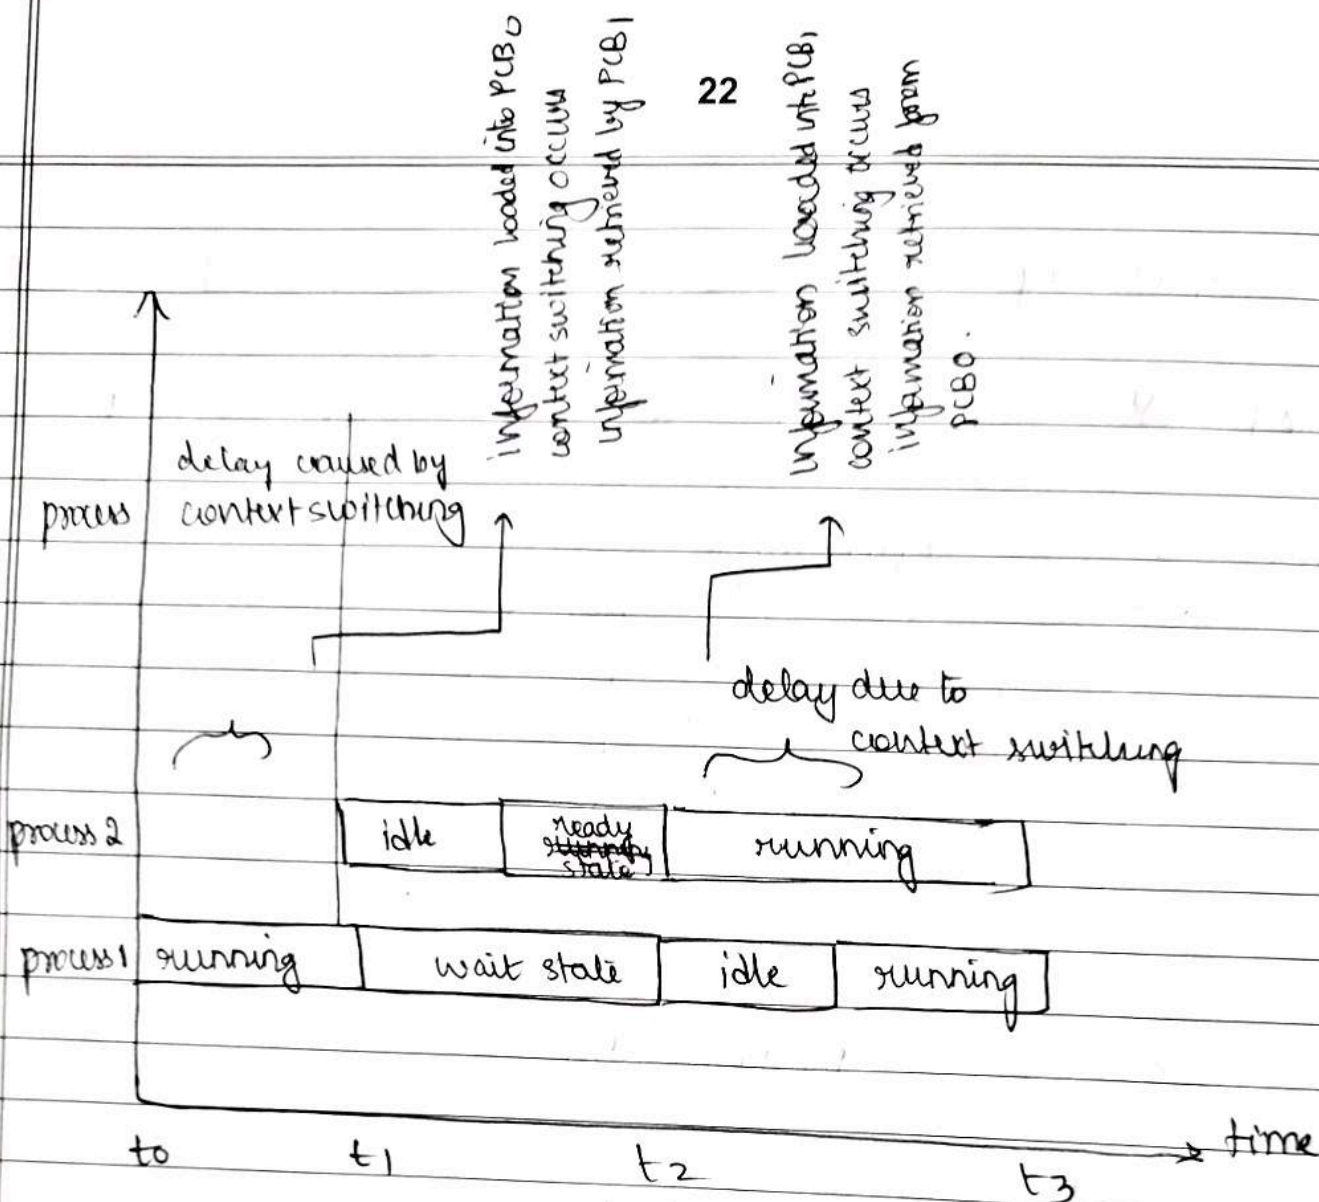 22
information loaded into PCB0
context switching occurs
information retrieved by PCB1
information loaded into PCB1
context switching occurs
information retrieved from
PCB0.
delay caused by
context switching
process
delay due to
context switching
process 2
idle
ready
state
running
process 1
running
wait state
idle
running
time
t0
t1
t2
t3